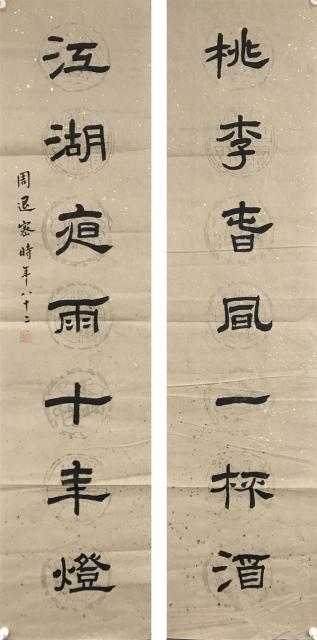 桃李春風一杯酒
江湖夜雨十年燈
周退密時年八十二